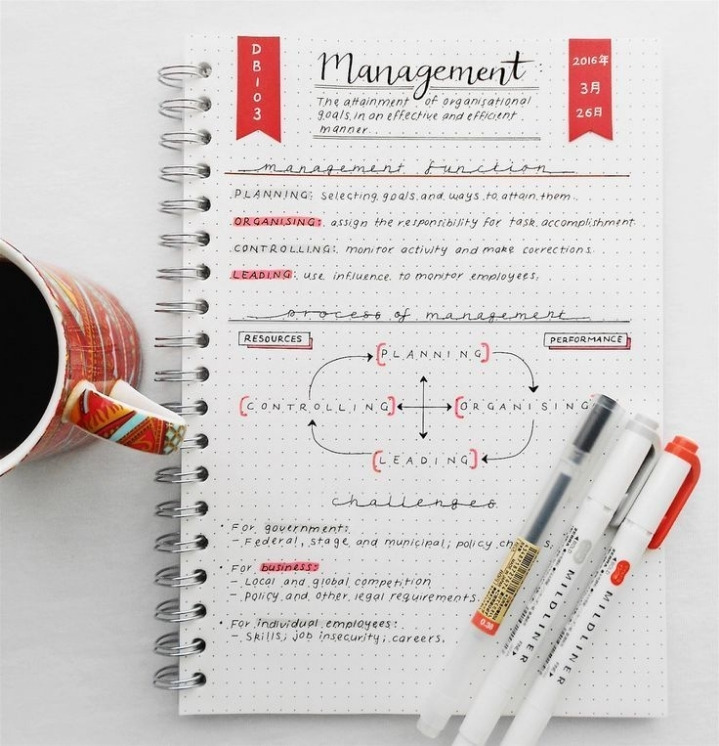 DB103
Management
2016年
3月
26日
The attainment of organisational
goals in an effective and efficient
manner.
management function
PLANNING: selecting goals and ways to attain them.
ORGANISING: assign the responsibility for task accomplishment
CONTROLLING: monitor activity and make corrections.
LEADING: use influence to monitor employees.
process of management
RESOURCES
PERFORMANCE
[PLANNING]
[CONTROLLING]
[ORGANISING
[LEADING]
challenges
• For government:
- Federal, stage and municipal; policy
• For business:
- Local and global competition
- Policy and other legal requirements
• For individual employees:
- Skills; job insecurity; careers.
0.38
MILDLINER
MILDLINER